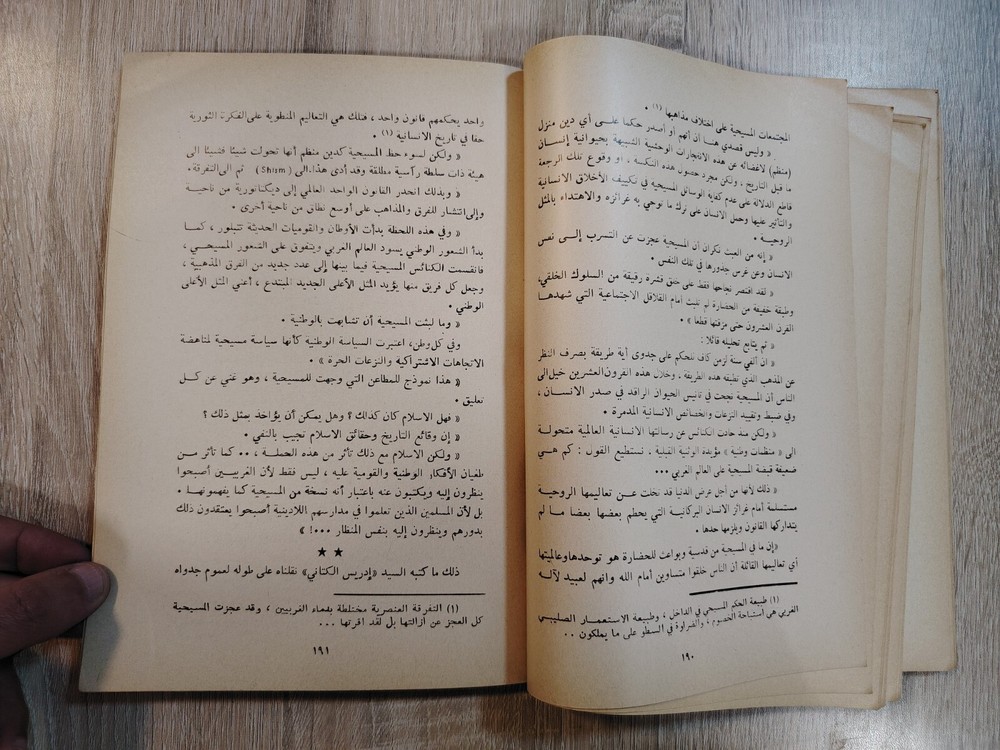 المجتمعات المسيحية على اختلاف مذاهبها (١) .
« وليس قصدي هنا أن أتهم أو أصدر حكما على أي دين منزل
(منظم) لاغضائه عن هذه الانفجارات الوحشية الشبيهة بحيوانية إنسان
ما قبل التاريخ ، ولكن مجرد حصول هذه النكسة ، او وقوع تلك الرجعة
قاطع الدلالة على عدم كفاية الوسائل المسيحية في تكييف الأخلاق الانسانية
والتأثير عليها وحمل الانسان على ترك ما توحي به غرائزه والاهتداء بالمثل
الروحية .
« إنه من العبث نكران أن المسيحية عجزت عن التسرب إلى نفس
الانسان وعن غرس جذورها في تلك النفس .
« لقد اقتصر نجاحها فقط على خلق قشرة رقيقة من السلوك الخلقي،
وطبقة خفيفة من الحضارة لم تلبث أمام القلاقل الاجتماعية التي شهدها
القرن العشرون حتى مزقتها قطعا » .
« ثم يتابع تحليله قائلا :
« ان ألفي سنة لزمن كاف للحكم على جدوى أية طريقة بصرف النظر
عن المذهب الذي تطبقه هذه الطريقة ، وخلال هذه القرون العشرين خيل الى
الناس أن المسيحية نجحت في تأنيس الحيوان الراقد في صدر الانسان ،
وفي ضبط وتقييد النزعات والخصائص الانسانية المدمرة .
« ولكن منذ حادت الكنائس عن رسالتها الانسانية العالمية متحولة
الى « منظمات وطنية » مؤيدة الوثنية القبلية . نستطيع القول : كم هي
ضعيفة قبضة المسيحية على العالم الغربي ...
« ذلك لأنها من أجل عرض الدنيا قد تخلت عن تعاليمها الروحية
مستسلمة أمام غرائز الانسان البركانية التي يحطم بعضها بعضا ما لم
يتداركها القانون ويلزمها حدها .
« إن ما في المسيحية من قدسية وبواعث للحضارة هو توحدها وعالميتها
أي تعاليمها القائلة أن الناس خلقوا متساوين أمام الله وانهم لعبيد لآله
(١) طبيعة الحكم المسيحي في الداخل ، وطبيعة الاستعمار الصليبي
الغربي هي استباحة الخصوم ، والضراوة في السطو على ما يملكون ..
١٩٠
واحد يحكمهم قانون واحد ، فتلك هي التعاليم المنطوية على الفكرة الثورية
حقا في تاريخ الانسانية (١) .
« ولكن لسوء حظ المسيحية كدين منظم أنها تحولت شيئا فشيئا الى
هيئة ذات سلطة رآسية مطلقة وقد أدى هذا الى (Shism) ثم الى التفرقة .
« وبذلك انحدر القانون الواحد العالمي إلى ديكتاتورية من ناحية
وإلى انتشار للفرق والمذاهب على أوسع نطاق من ناحية أخرى .
« وفي هذه اللحظة بدأت الأوطان والقوميات الحديثة تتبلور ، كما
بدأ الشعور الوطني يسود العالم الغربي ويتفوق على الشعور المسيحي ،
فانقسمت الكنائس المسيحية فيما بينها إلى عدد جديد من الفرق المذهبية ،
وجعل كل فريق منها يؤيد المثل الأعلى الجديد المبتدع ، أعني المثل الأعلى
الوطني .
« وما لبثت المسيحية أن تشابهت بالوطنية .
وفي كل وطن، اعتبرت السياسة الوطنية كأنها سياسة مسيحية لمناهضة
الاتجاهات الاشتراكية والنزعات الحرة » .
« هذا نموذج للمطاعن التي وجهت للمسيحية ، وهو غني عن كل
تعليق .
« فهل الاسلام كان كذلك ؟ وهل يمكن أن يؤاخذ بمثل ذلك ؟
« إن وقائع التاريخ وحقائق الاسلام تجيب بالنفي .
« ولكن الاسلام مع ذلك تأثر من هذه الحملة ، .. كما تأثر من
طغيان الأفكار الوطنية والقومية عليه ، ليس فقط لأن الغربيين أصبحوا
ينظرون إليه ويكتبون عنه باعتبار أنه نسخة من المسيحية كما يفهمونها .
بل لأن المسلمين الذين تعلموا في مدارسهم اللادينية أصبحوا يعتقدون ذلك
بدورهم وينظرون إليه بنفس المنظار ...! »
★ ★
ذلك ما كتبه السيد «إدريس الكتاني» نقلناه على طوله لعموم جدواه
(١) التفرقة العنصرية مختلطة بدماء الغربيين ، وقد عجزت المسيحية
كل العجز عن ازالتها بل لقد اقرتها ...
١٩١